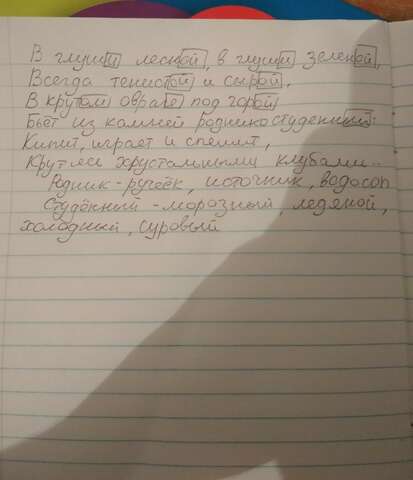 В глуши лесной, в глуши зеленой,
Всегда тенистой и сырой,
В крутом овраге под горой
Бьёт из камней родник студеный:
Кипит, играет и спешит,
Крутясь хрустальными клубами...
Родник - ручеёк, источник, водосоп
Студёный - морозный, ледяной,
холодный, суровый